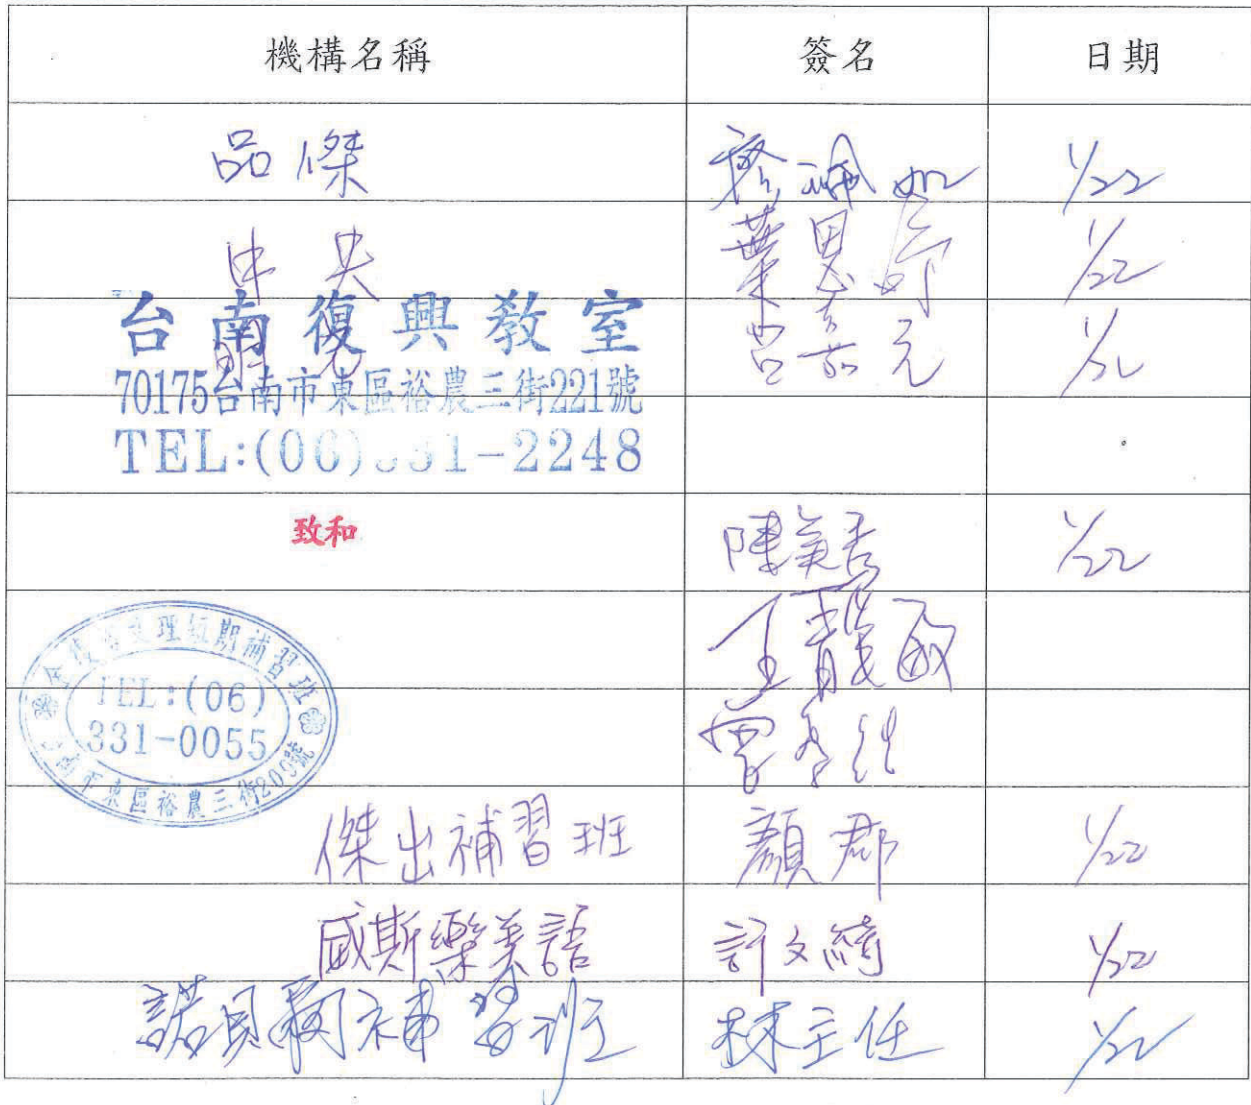 機構名稱 簽名 日期
品傑 廖珮如 1/22
中央 葉思 1/22
台南復興教室
呂嘉元 1/22
70175台南市東區裕農三街221號
TEL:(06)331-2248
致和 陳美香 1/22
王 敏
理短期補習班
TEL:(06)
331-0055
曾
市東區裕農三街209號
傑出補習班 顏郡 1/22
威斯樂美語 許文綺 1/22
諾貝爾補習班 林主任 1/22